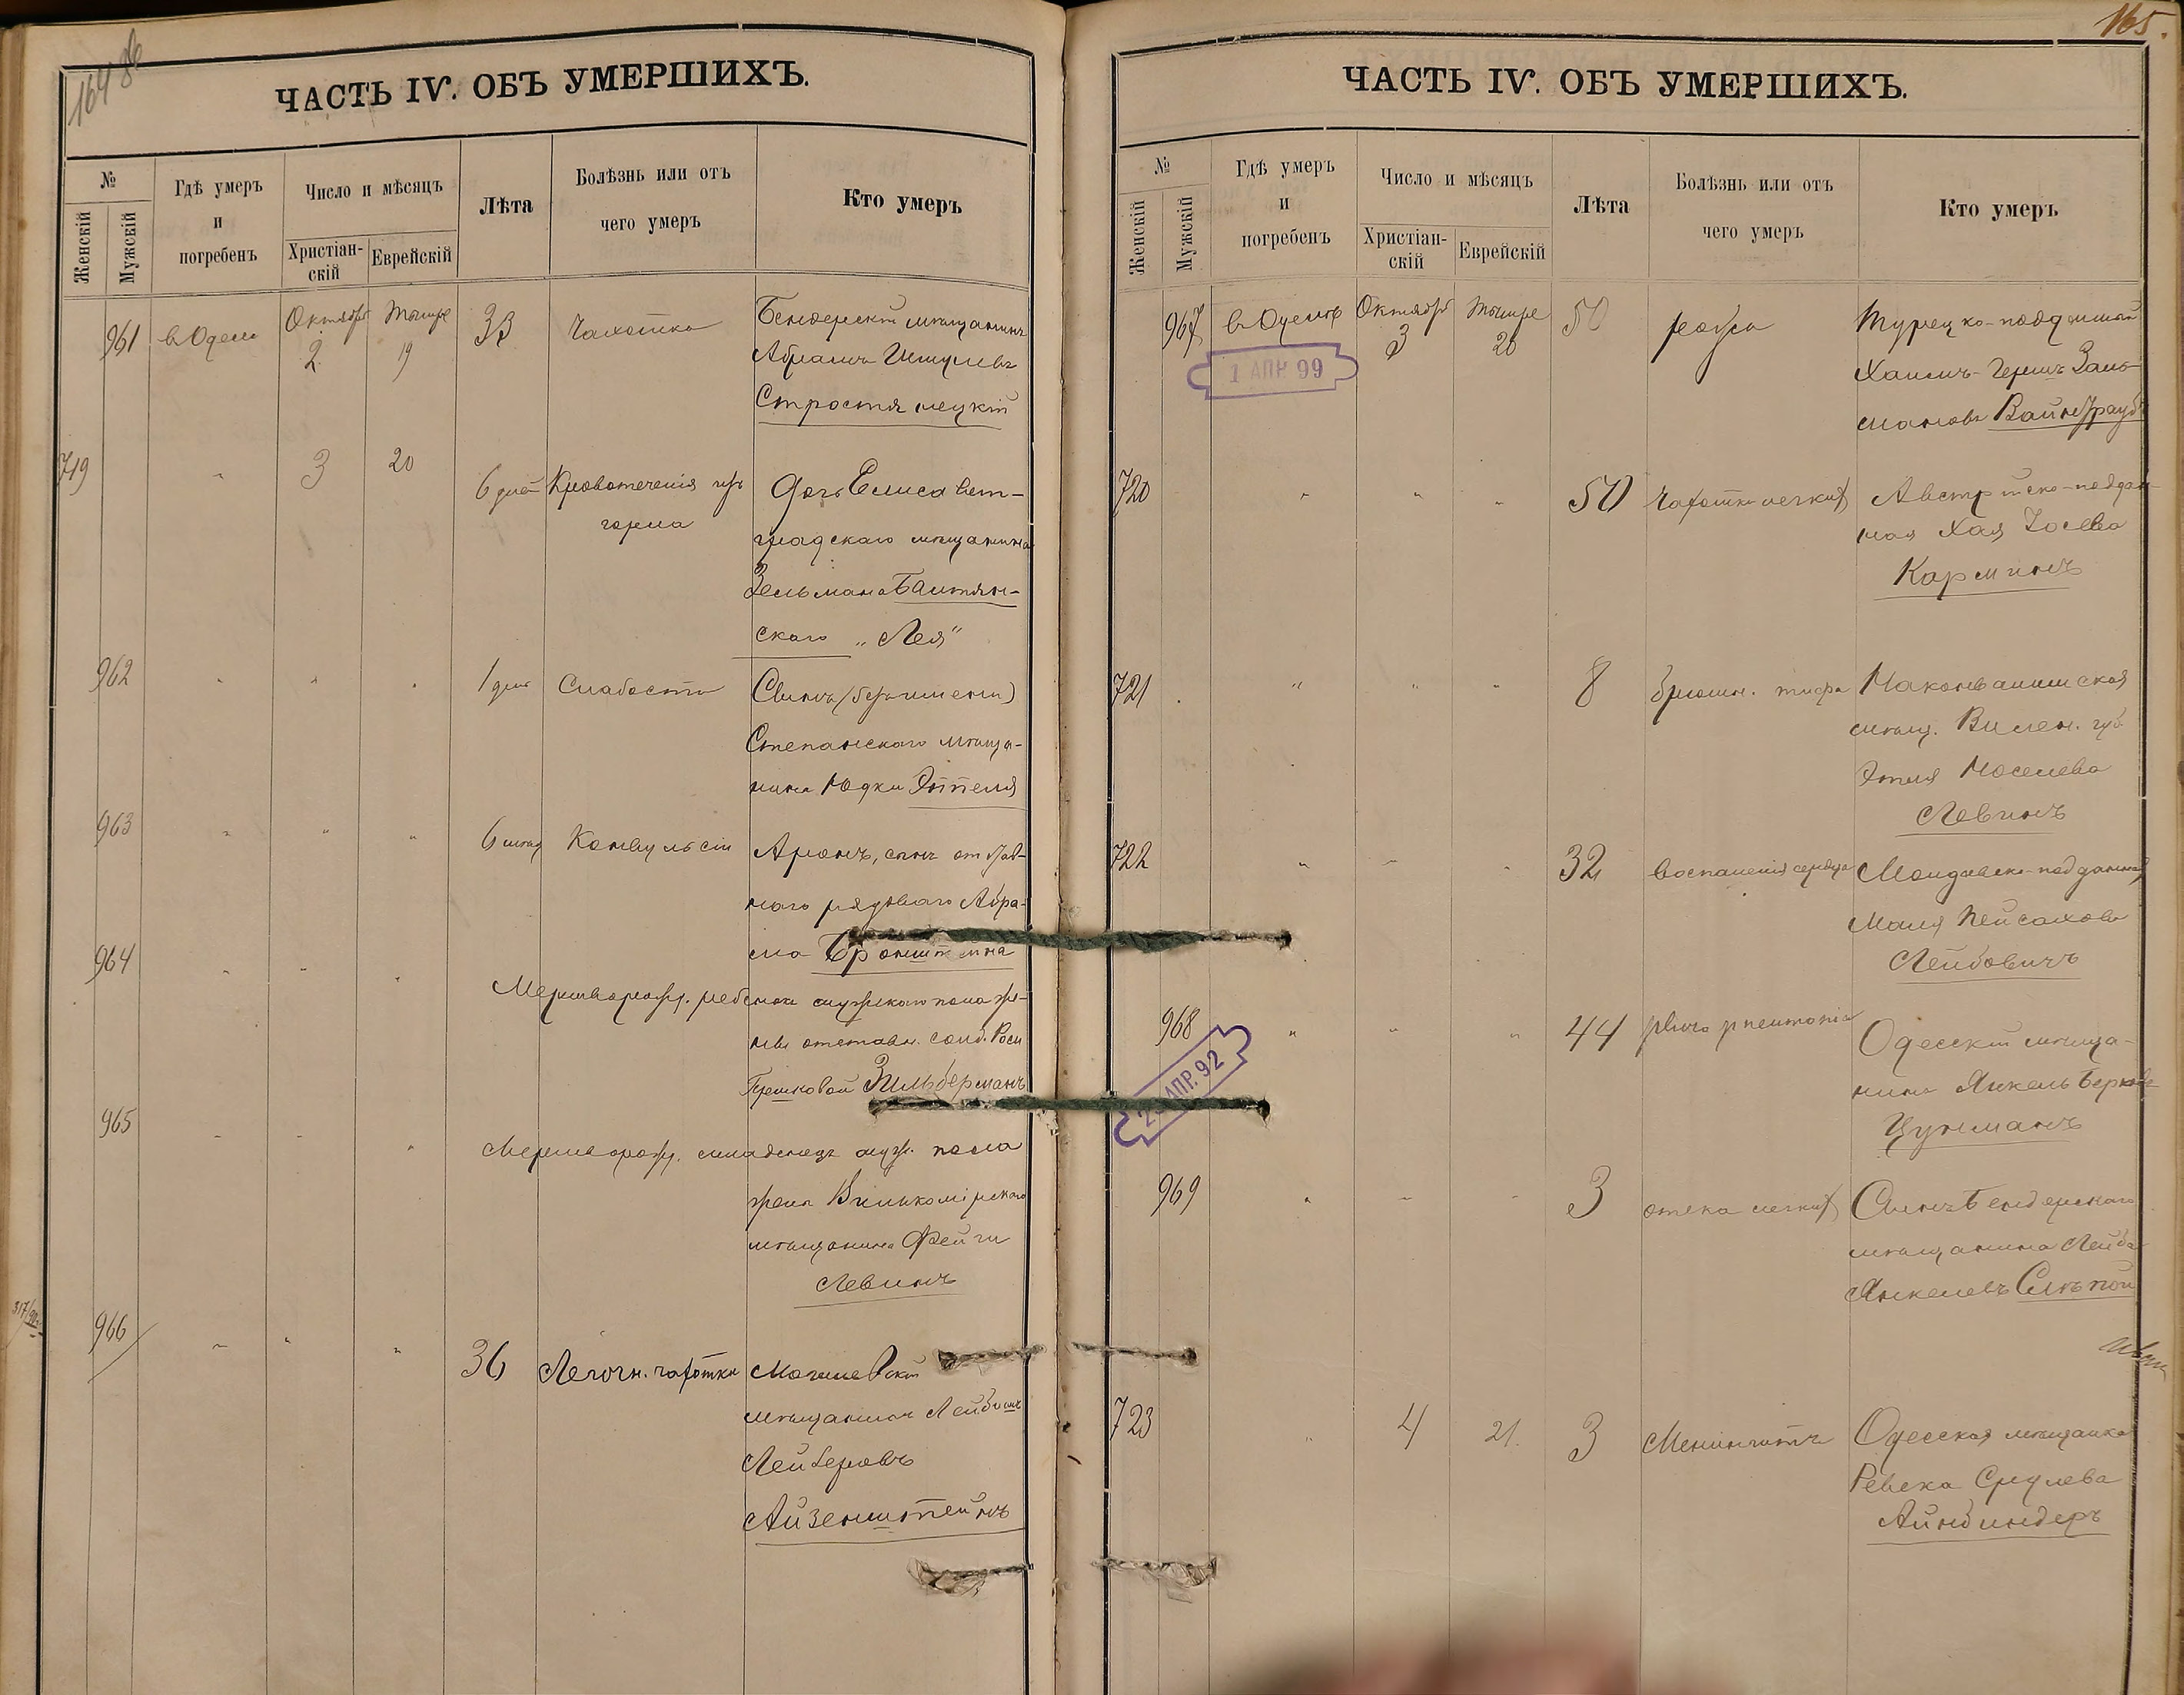 ЧАСТЬ IV. ОБЪ УМЕРШИХЪ.
№
Женскій
Мужскій
Гдѣ умеръ
и
погребенъ
Число и мѣсяцъ
Христіан-
скій
Еврейскій
Лѣта
Болѣзнь или отъ
чего умеръ
Кто умеръ
961 в Одессѣ Октября 2 Тишре 19 33 Чахотка Бендерскій мѣщанинъ
Абрамъ
719 " 3 20 6 дней Кровотеченія изъ
горла
Дочь Елисавет-
градскаго мѣщанина
Зельмана
скаго „Лея"
962 " " " 1 день Слабости Сынъ (безъ имени)
Степанскаго мѣща-
нина Юдки
963 " " " 6 мѣсяц Конвульсіи Аронъ, сынъ отстав-
наго рядоваго Абра-
ма Бронштейна
964 " " "
Мертворожд. ребенокъ мужскаго пола же-
ны отставн. солд.
Зильберманъ
965 " " "
Мертворожд. младенецъ муж. пола
жены Вилькомірскаго
мѣщанина Фейги
Левинъ
317/90
966 " " " 36 Легочн. чахотки Могилевскій
мѣщанинъ
Айзенштейнъ
165.
ЧАСТЬ IV. ОБЪ УМЕРШИХЪ.
№
Женскій
Мужскій
Гдѣ умеръ
и
погребенъ
Число и мѣсяцъ
Христіан-
скій
Еврейскій
Лѣта
Болѣзнь или отъ
чего умеръ
Кто умеръ
967 в Одессѣ Октября 3 Тишре 20 50 Турецко-подданный
Хаимъ-Гершъ Заль-
мановъ Вайнтраубъ
1 АПР. 99
720 " " " 50 Чахотки легкихъ Австрійско-поддан-
ная Хая Іосева
Карминъ
721 " " " 8 брюшн. тифа
мѣщ. Вилен. губ.
Этля Моселева
Левинъ
722 " " " 32 воспаленія сердца Молдавско-подданная
Маля Пейсахова
Лейбовичъ
968 " " " 44 pleuro pneumonia Одесскій мѣща-
нинъ Янкель Берков
Цукманъ
АПР. 92
969 " " " 3 отека легкихъ Сынъ Бендерскаго
мѣщанина Лейба
Янкелевъ Слѣпой
723 " 4 21. 3 Менингитъ Одесская мѣщанка
Ревека Срулева
Айнбиндеръ